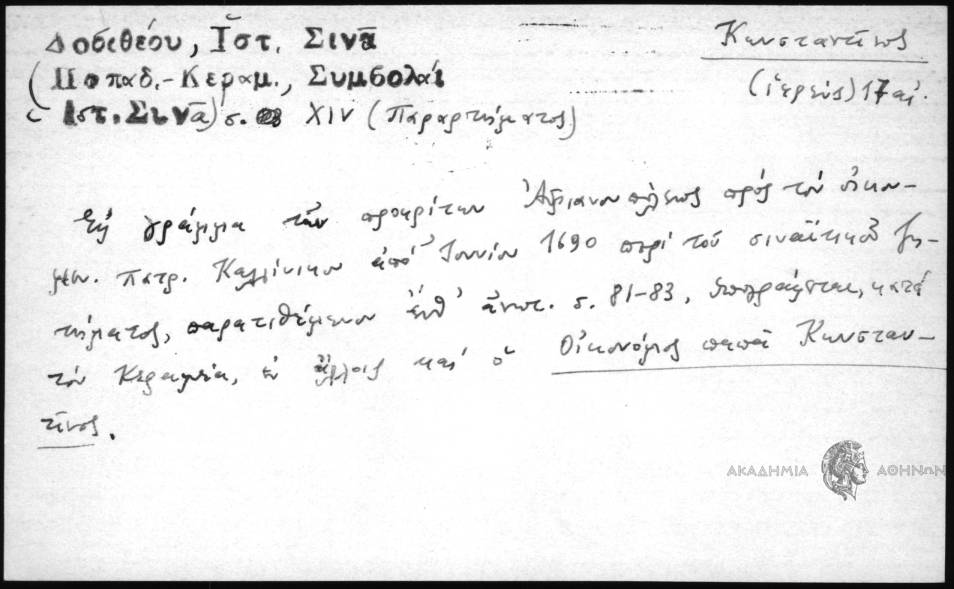 Δοσιθέου, Ἱστ. Σινᾶ
(Παπαδ.-Κεραμ., Συμβολαί
Ἱστ. Σινᾶ) σ. XIV (Παραρτήματος)
Κωνσταντῖνος
(ἱερεύς) 17 αἰ.
Εἰς γράμμα τῶν προκρίτων Ἀδριανουπόλεως πρός τόν οἰκου-
μεν. πατρ. Καλλίνικον ἀπό Ἰουνίου 1690 περί τοῦ σιναϊτικοῦ ζη-
τήματος, παρατιθέμενον ἐνθ' ἀνωτ. σ. 81-83, ὑπογράφεται, κατά
τόν Κεραμέα, ἐν ἄλλοις καί ὁ Οἰκονόμος παπᾶ Κωνσταν-
τῖνος.
ΑΚΑΔΗΜΙΑ ΑΘΗΝΩΝ